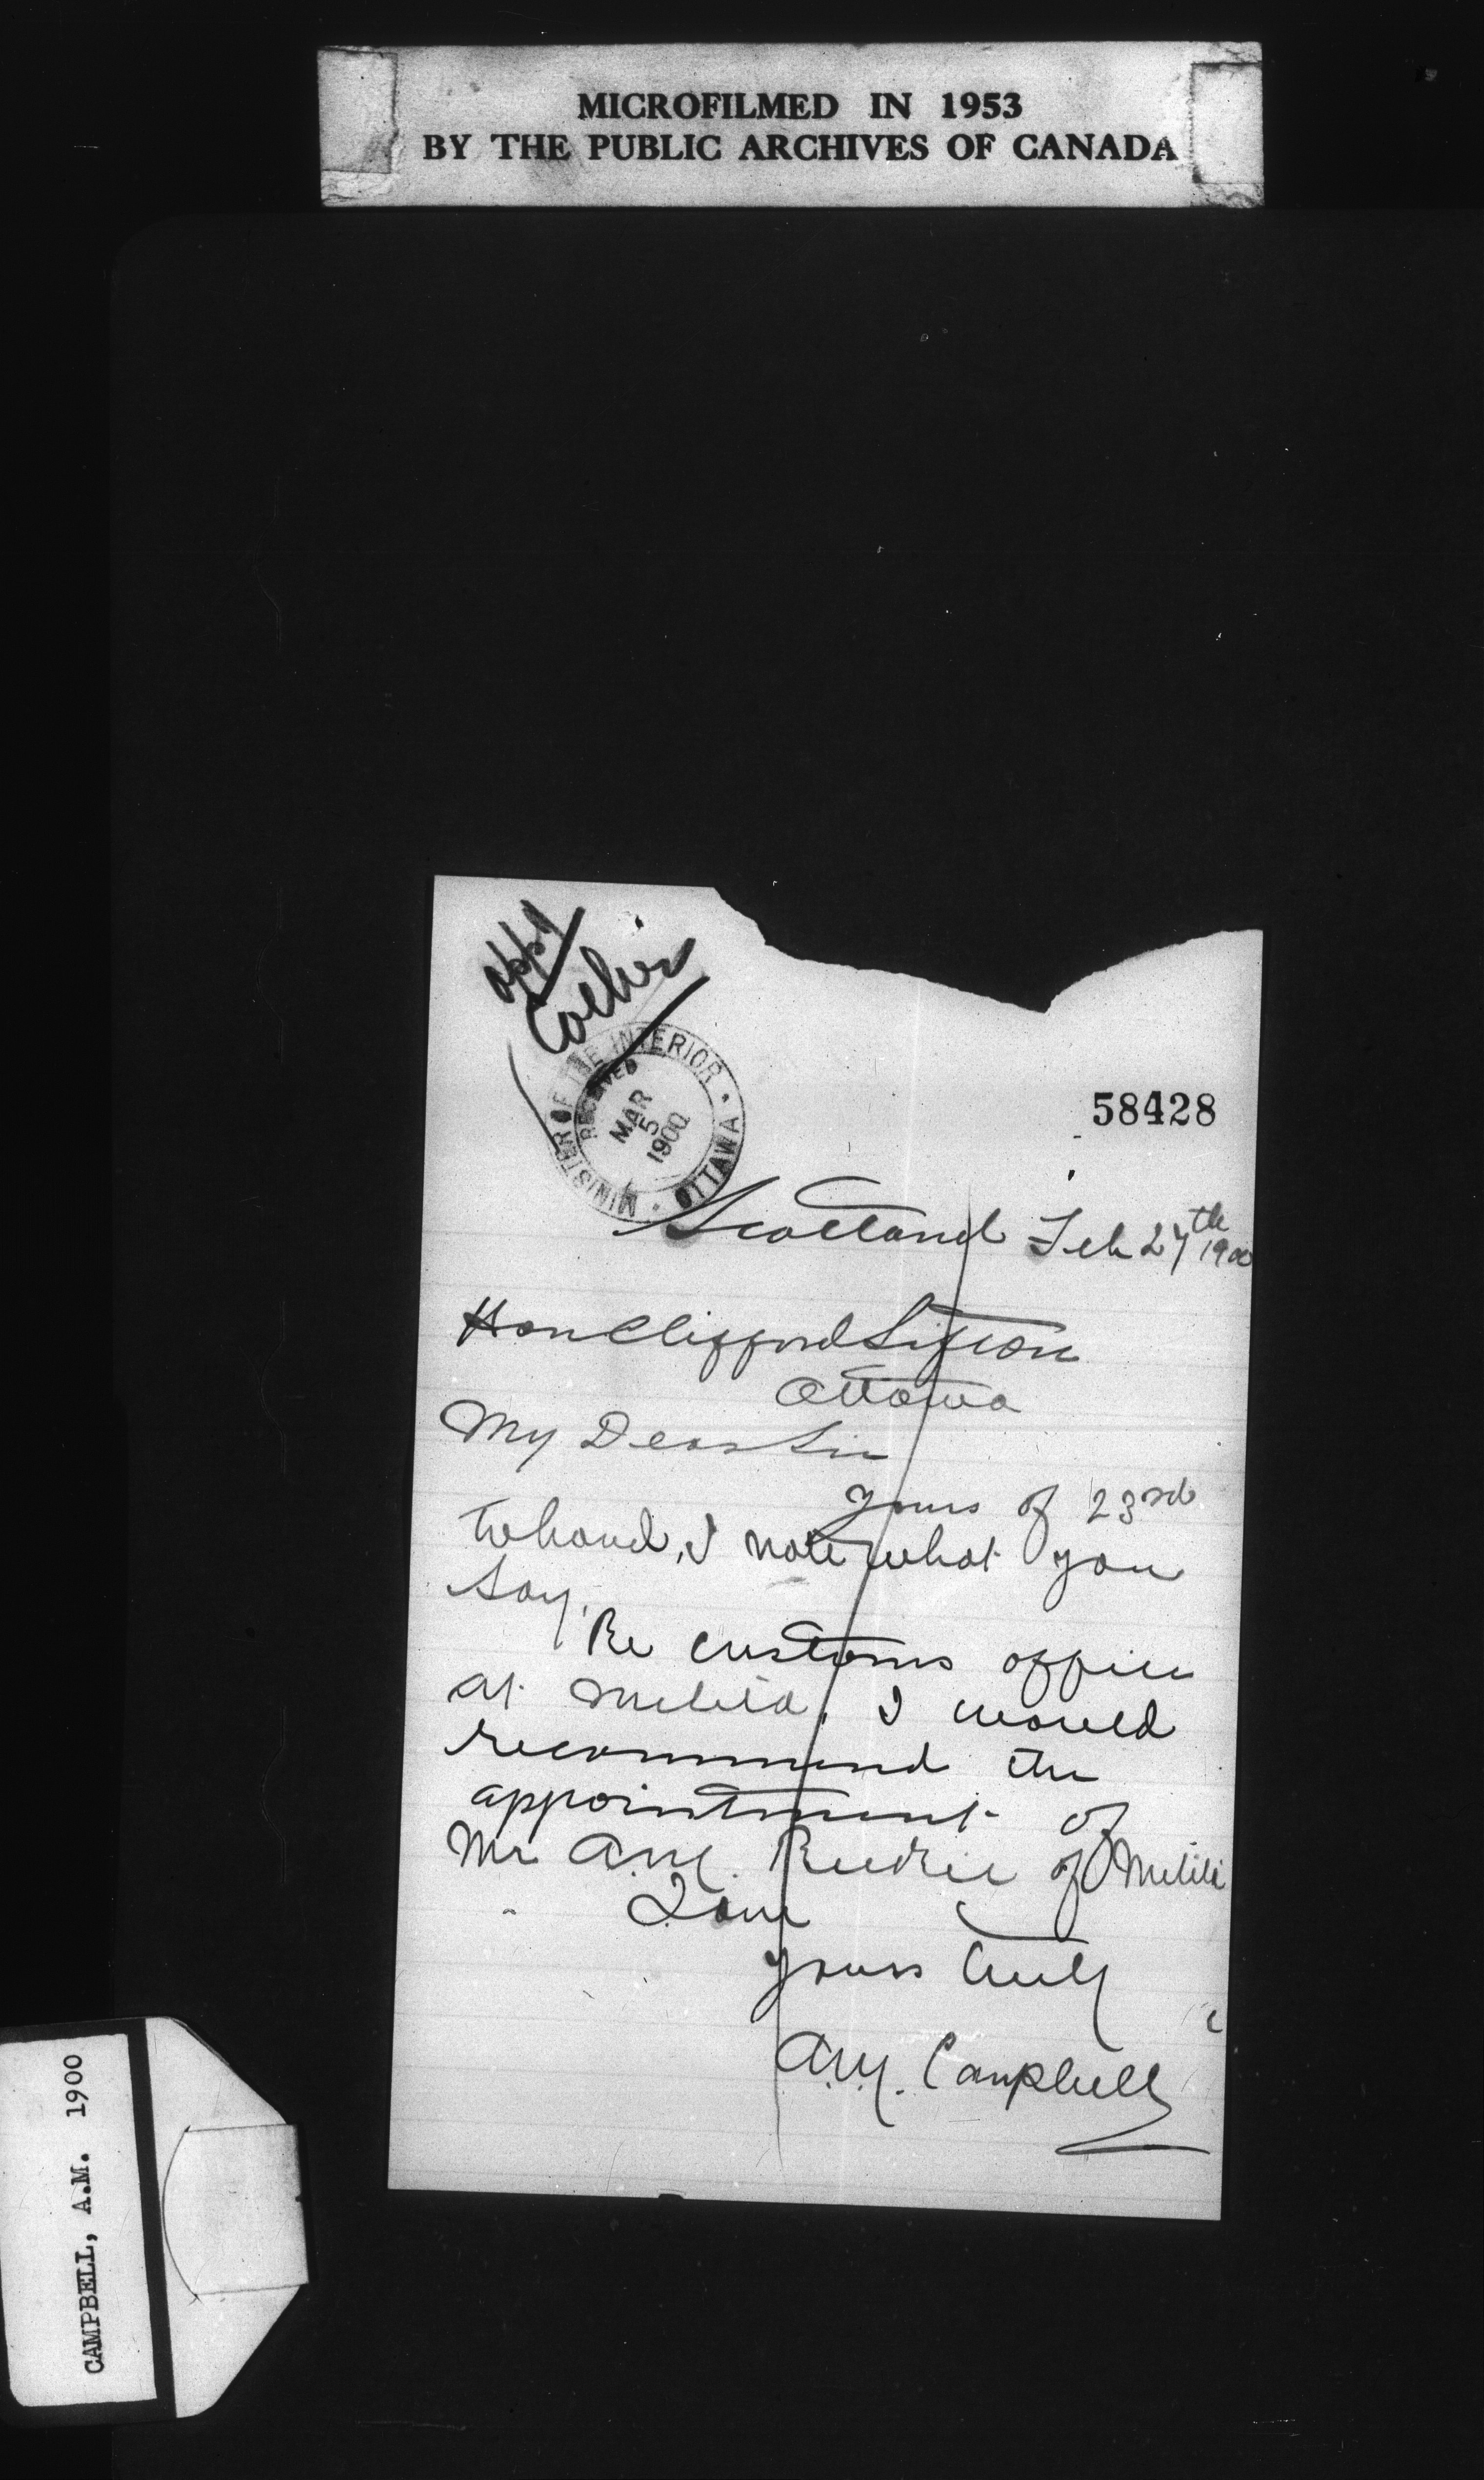 MICROFILMED IN 1953
BY THE PUBLIC ARCHIVES OF CANADA
appt
MINISTER OF THE INTERIOR · OTTAWA ·
RECEIVED
MAR
5
1900
58428
Scotland Feb 27th 1900
Hon Clifford Sifton
Ottawa
My Dear Sir
Yours of 23rd
to hand, I note what you
say,
Re customs office
at Melita, I would
recommend the
appointment of
Mr A.M. of Melita
I am
yours truly
A.M. Campbell
CAMPBELL, A.M. 1900